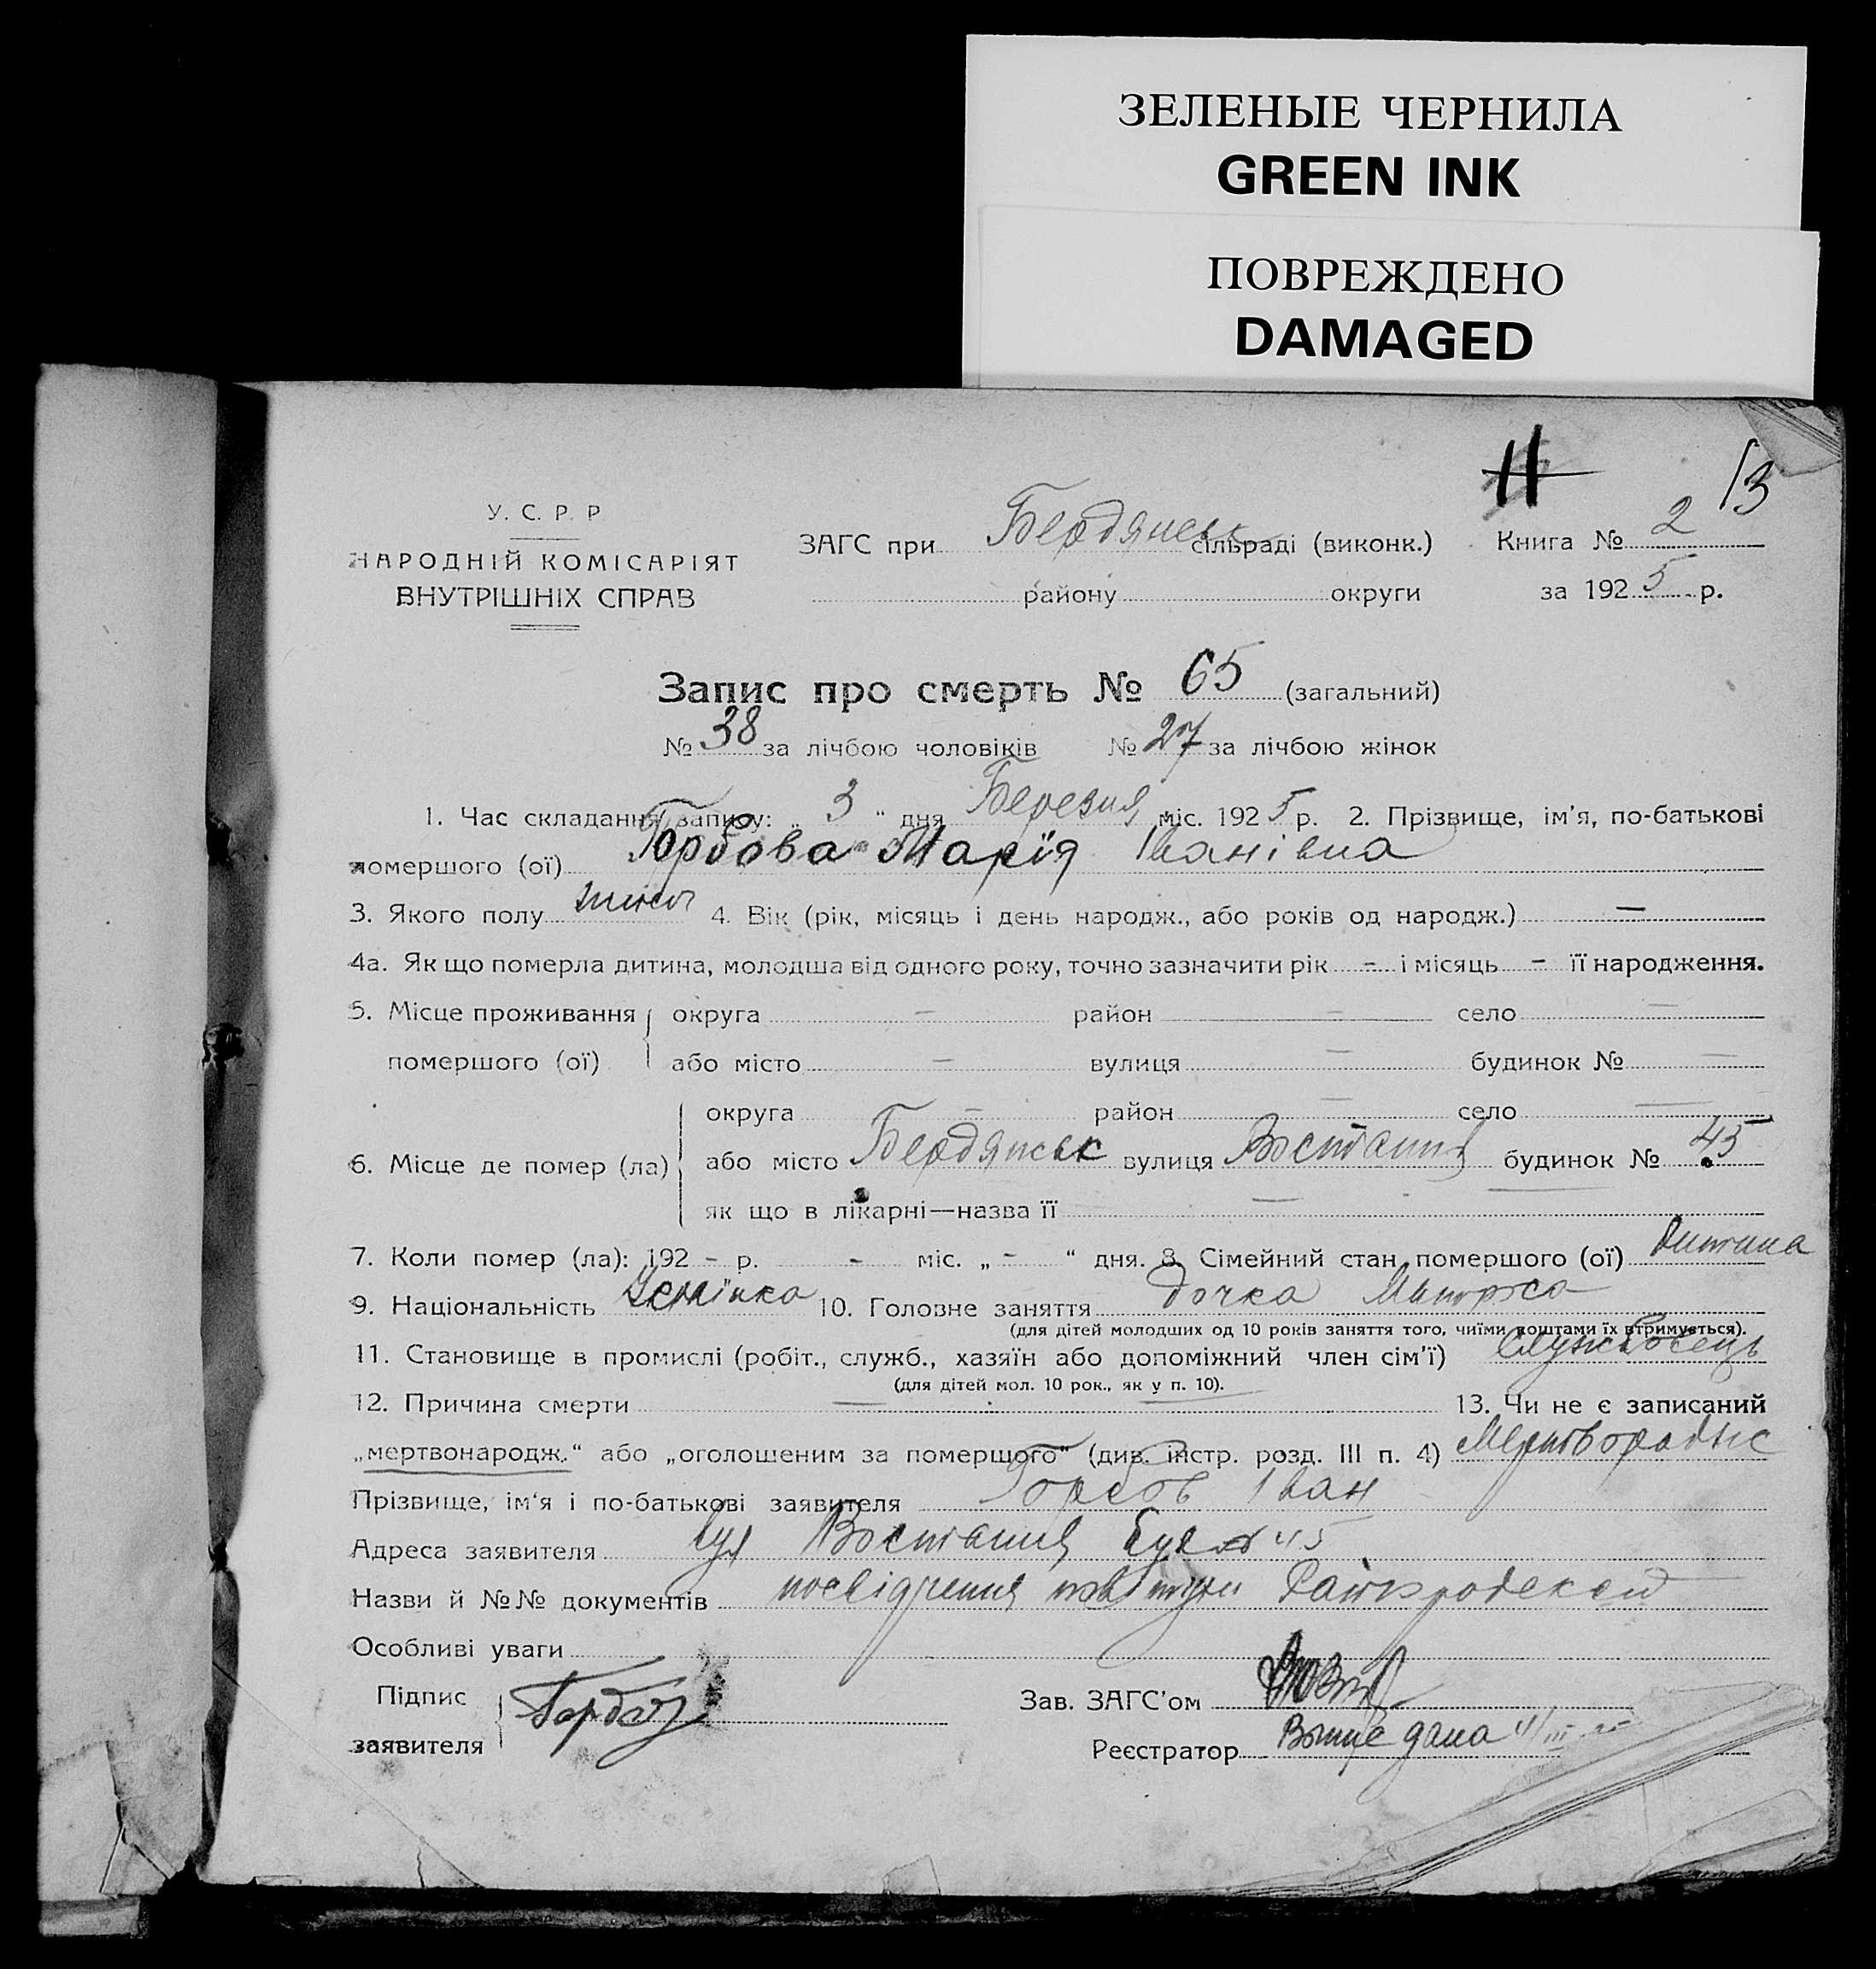 ЗЕЛЕНЫЕ ЧЕРНИЛА
GREEN INK
ПОВРЕЖДЕНО
DAMAGED
11
13
У. С. Р. Р
НАРОДНІЙ КОМІСАРІЯТ
ВНУТРІШНІХ СПРАВ
ЗАГС при Бердянськ сільраді (виконк.) Книга № 2
району округи за 1925 р.
Запис про смерть № 65 (загальний)
№ 38 за лічбою чоловіків № 27 за лічбою жінок
1. Час складання запису: „ 3 “ дня Березня міс. 1925 р. 2. Прізвище, ім'я, по-батькові
помершого (ої) Горбова Марія Іванівна
3. Якого полу жіноч 4. Вік (рік, місяць і день народж., або років од народж.) —
4а. Як що померла дитина, молодша від одного року, точно зазначити рік - і місяць - її народження.
5. Місце проживання округа — район — село —
помершого (ої) або місто — вулиця — будинок № —
округа — район — село —
6. Місце де помер (ла) або місто Бердянськ вулиця Востания будинок № 45
як що в лікарні—назва її —
7. Коли помер (ла): 192 - р. - міс. „ - “ дня. 8. Сімейний стан помершого (ої) дитина
9. Національність Українка 10. Головне заняття дочка
(для дітей молодших од 10 років заняття того, чиїми коштами їх втримується).
11. Становище в промислі (робіт., служб., хазяїн або допоміжний член сім'ї) Служbовець
(для дітей мол. 10 рок., як у п. 10).
12. Причина смерти — 13. Чи не є записаний
„мертвонародж.“ або „оголошеним за померщого“ (див. інстр. розд. III п. 4)
Прізвище, ім'я і по-батькові заявителя Горбов Іван
Адреса заявителя вул Востания буд № 45
Назви й №№ документів посвідчення
Особливі уваги
Підпис
заявителя Горбов
Зав. ЗАГС'ом
Реєстратор дана